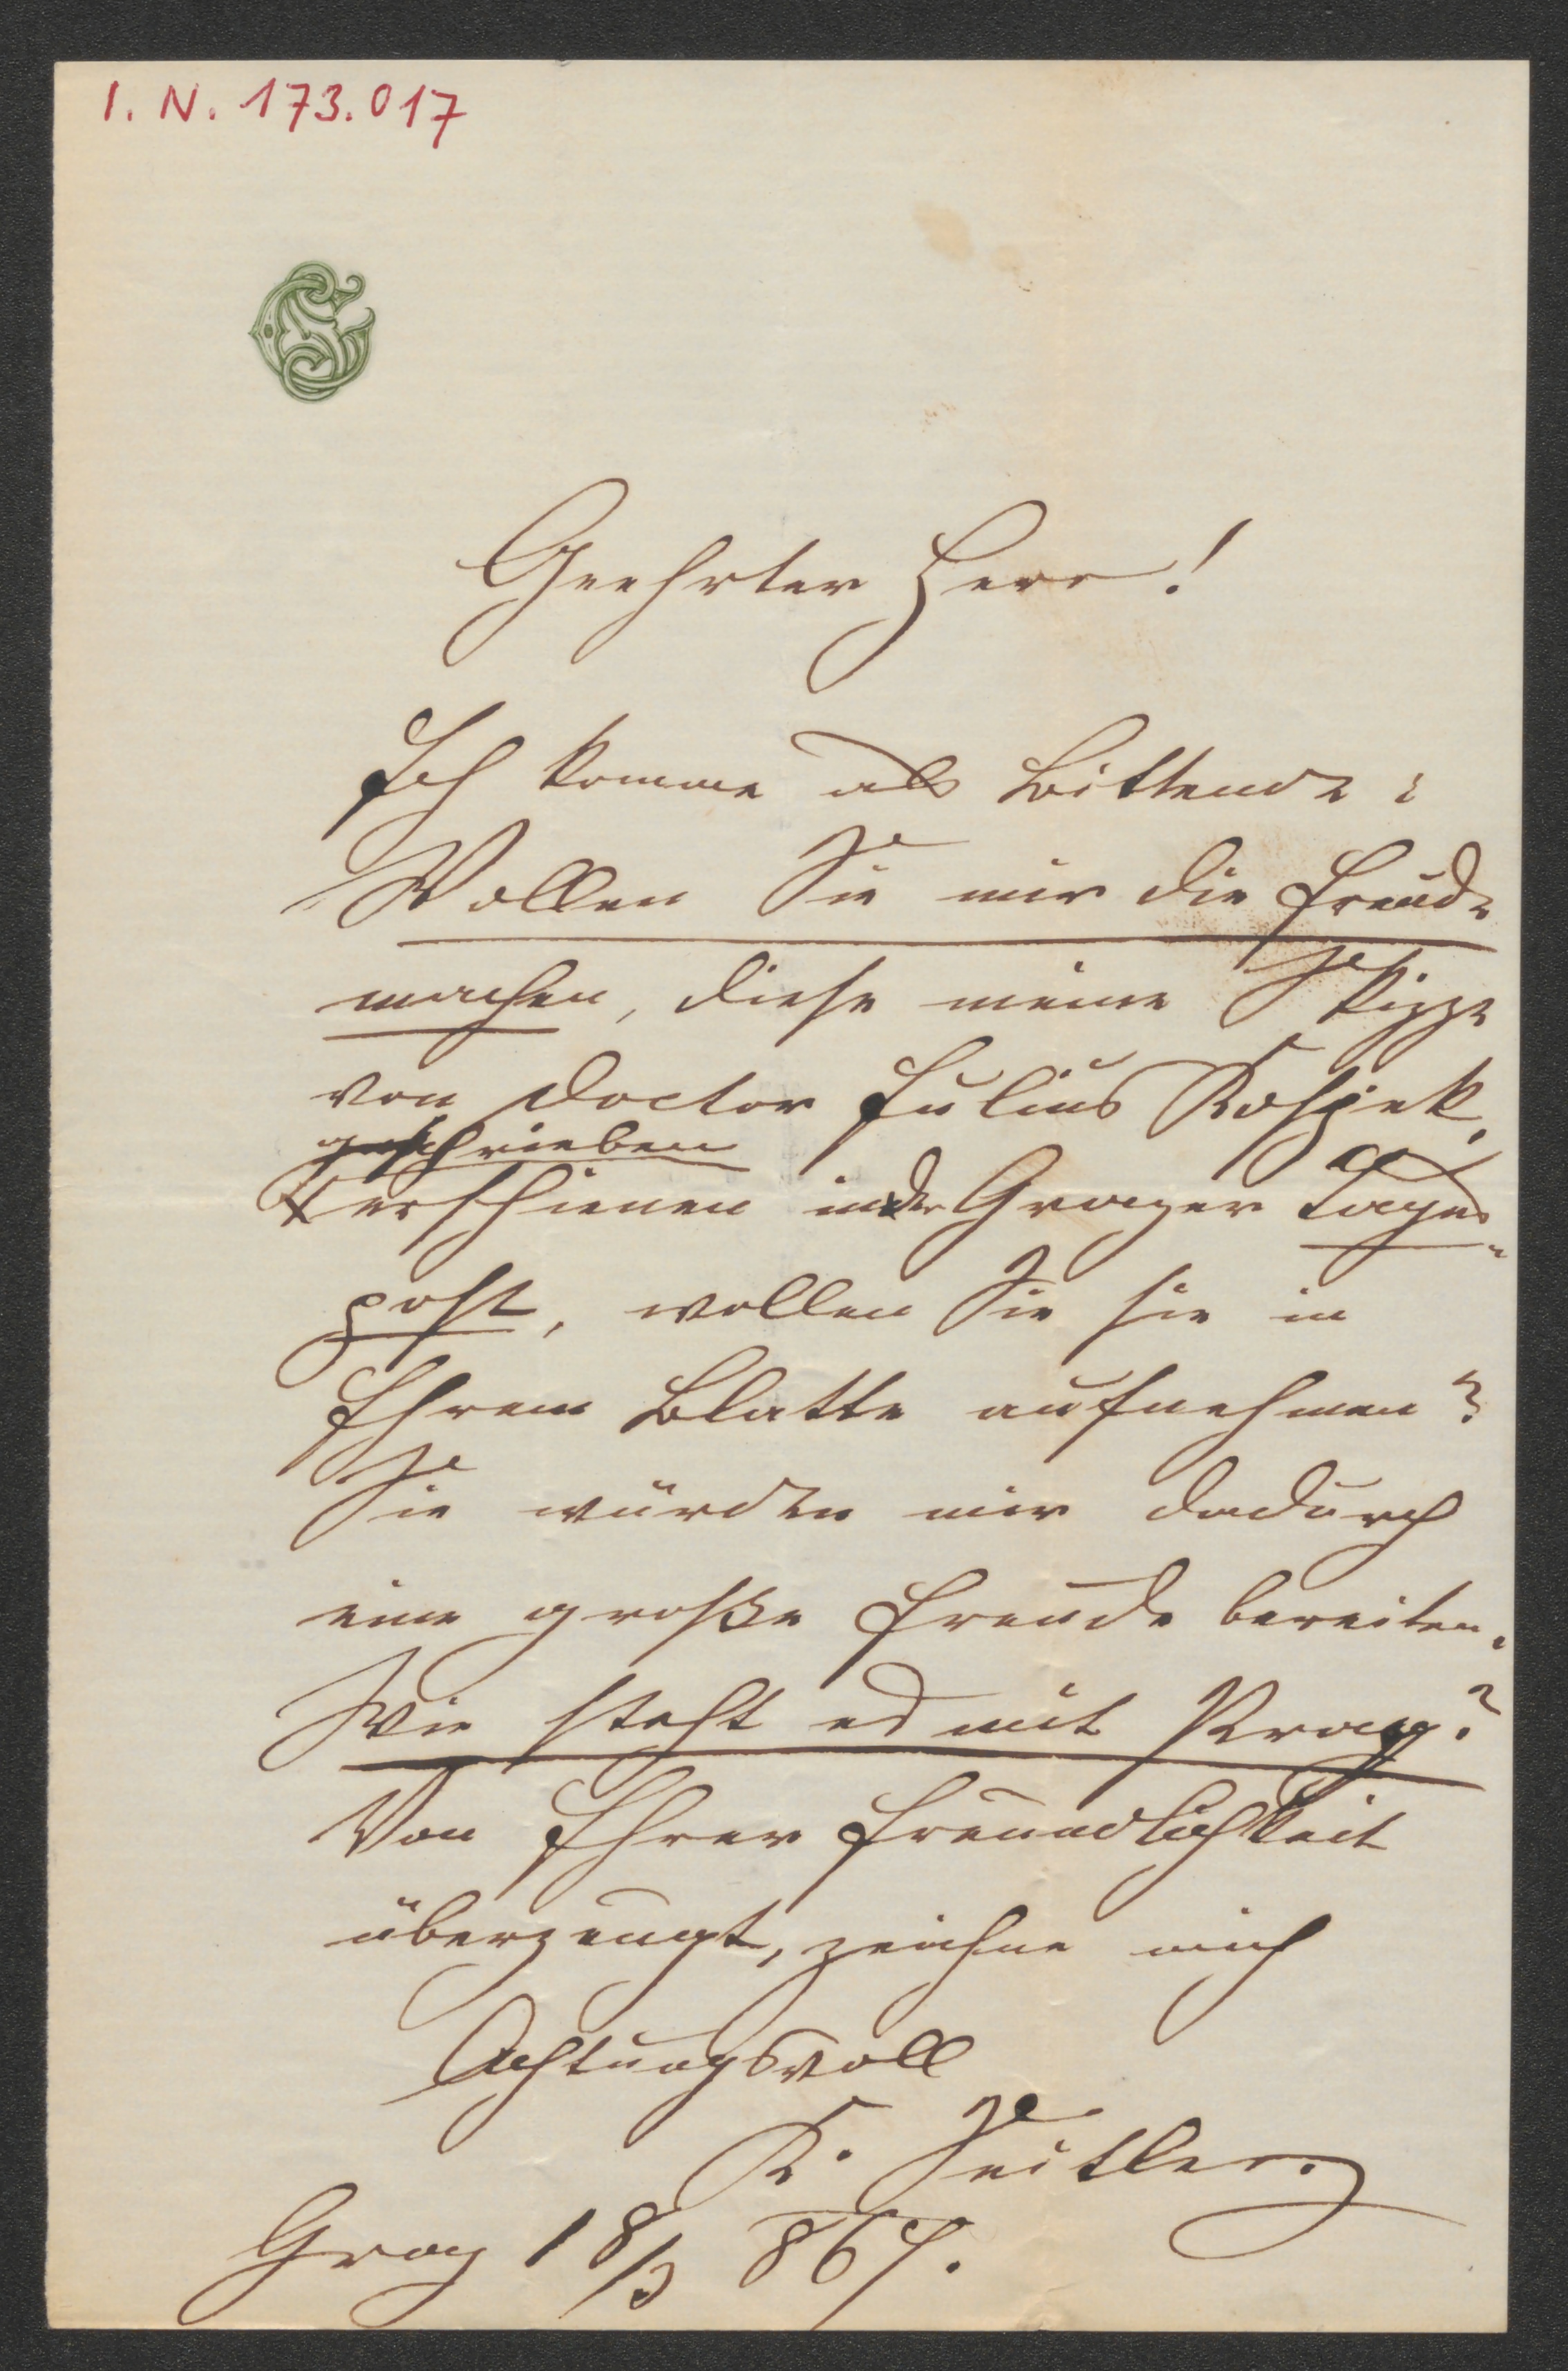 I. N. 173.017
Geehrter Herr!
Ich komme als Bittende:
Wollen Sie mir die Freude
machen, diese meine Skizze
von Doctor Julius
geschrieben
erschienen in der Grazer Tages-
post, wollen Sie sie in
Ihrem Blatte aufnehmen?
Sie würden mir dadurch
eine große Freude bereiten.
Wie steht es mit Prag?
Von Ihrer Freundlichkeit
überzeugt, zeichne mich
Achtungsvoll
K. Seitler.
Graz 18/3 867.